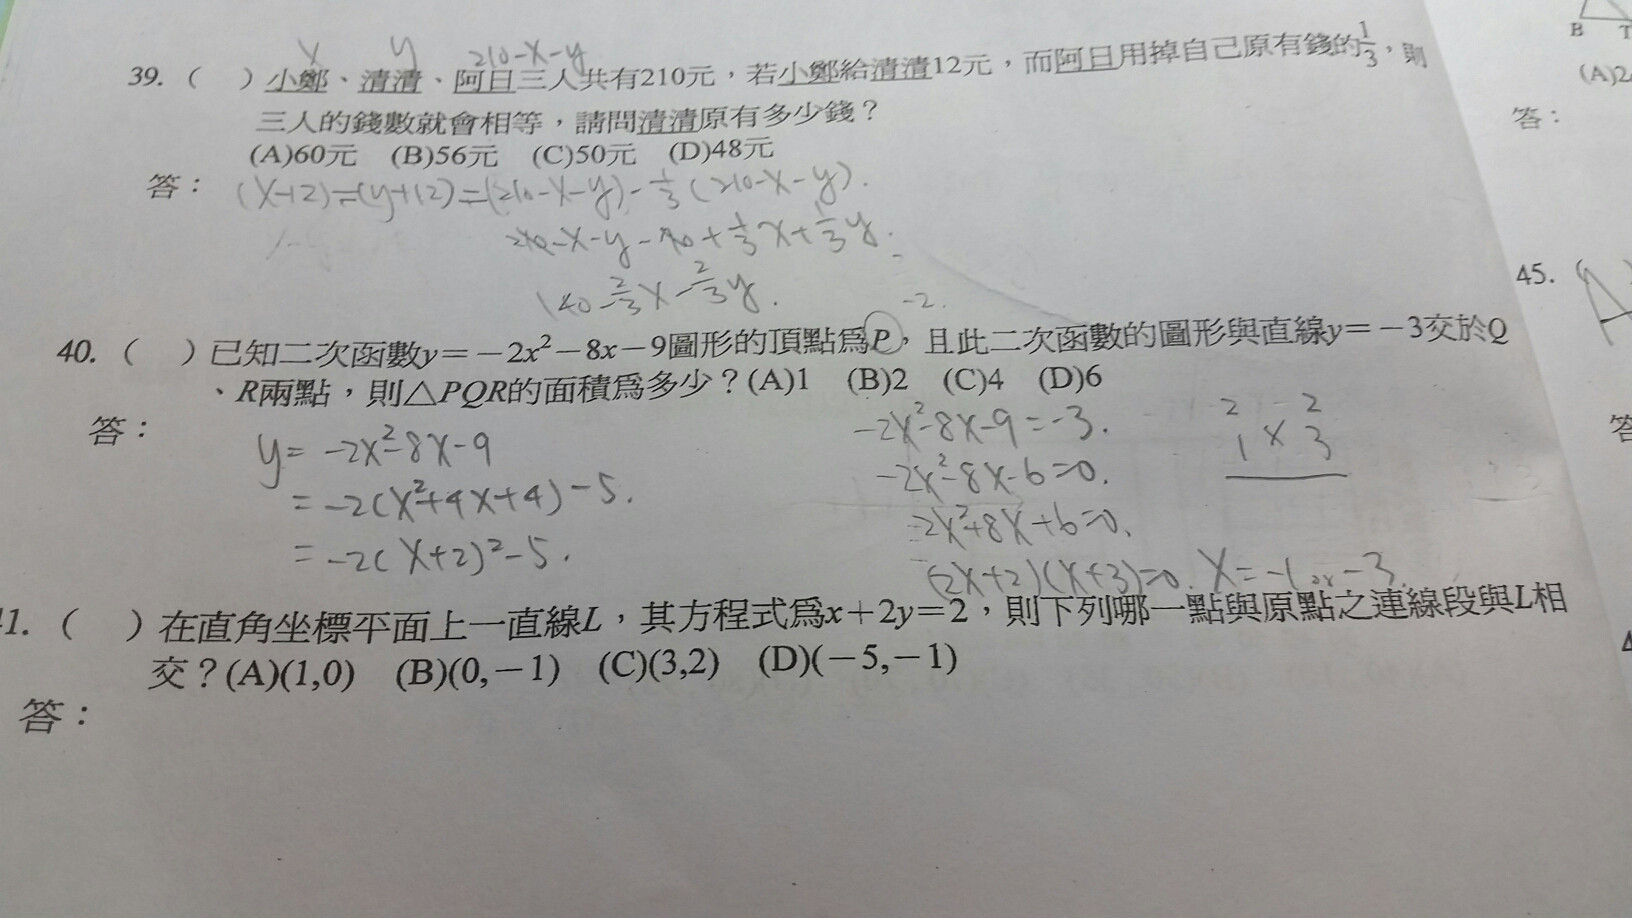 x y 210-x-y
39. ( ) 小鄭、清清、阿日三人共有210元，若小鄭給清清12元，而阿日用掉自己原有錢的1/3，則
三人的錢數就會相等，請問清清原有多少錢？
(A)60元 (B)56元 (C)50元 (D)48元
答：
(x-12)=(y+12)=(210-x-y)-1/3(210-x-y).
210-x-y-70+1/3x+1/3y.
140-2/3x-2/3y.
-2.
40. ( ) 已知二次函數y=-2x²-8x-9圖形的頂點為P，且此二次函數的圖形與直線y=-3交於Q
、R兩點，則△PQR的面積為多少？(A)1 (B)2 (C)4 (D)6
答：
y=-2x²-8x-9
=-2(x²+4x+4)-5.
=-2(x+2)²-5.
-2x²-8x-9=-3.
-2x²-8x-6=0.
2x²+8x+6=0.
(2x+2)(x+3)=0. x=-1 or -3
2 2
1 × 3
41. ( ) 在直角坐標平面上一直線L，其方程式為x+2y=2，則下列哪一點與原點之連線段與L相
交？(A)(1,0) (B)(0,-1) (C)(3,2) (D)(-5,-1)
答：
B T
(A)2
答：
45. (
答